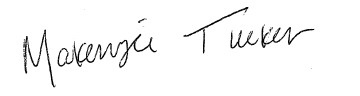 Makenzie Tucker